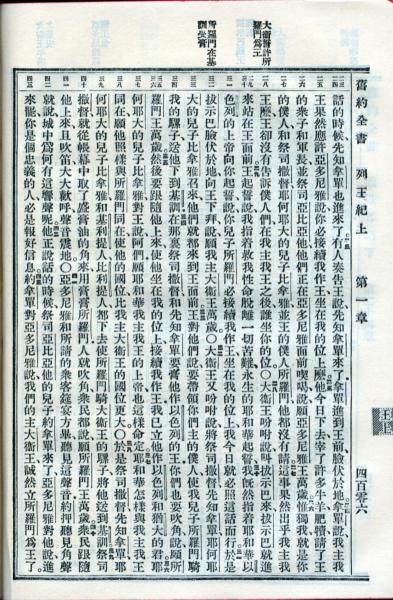 舊約全書　列王紀上　第一章　四百零六
大衛誓許所羅門爲王
所羅門在基訓受膏
話的時候先知拿單也進來了有人奏告王說先知拿單來了拿單進到王前臉伏於地拿單說我主我
王果然應許亞多尼雅說你必接續我作王坐在我的位上麼他今日下去宰了許多牛羊肥犢請了王
的衆子和軍長並祭司亞比亞他他們正在亞多尼雅面前喫喝說願亞多尼雅王萬歲惟獨我就是你
的僕人和祭司撒督耶何耶大的兒子比拿雅並王的僕人所羅門他都沒有請這事果然出乎我主我
王麼王卻沒有告訴僕人們在我主我王之後誰坐你的位〇大衛王吩咐說呌拔示巴來拔示巴就進
來站在王面前王起誓說我指着救我性命脫離一切苦難永生的耶和華起誓我既然指着耶和華以
色列的上帝向你起誓說你兒子所羅門必接續我作王坐在我的位上我今日就必照這話而行於是
拔示巴臉伏於地向王下拜說願我主大衛王萬歲〇大衛王又吩咐說將祭司撒督先知拿單耶何耶
大的兒子比拿雅召來他們就都來到王面前王對他們說要帶領你們主的僕人使我兒子所羅門騎
我的騾子送他下到基訓在那裏祭司撒督和先知拿單要膏他作以色列的王你們也要吹角說願所
羅門王萬歲然後要跟隨他上來使他坐在我的位上接續我作王我已立他作以色列和猶大的君耶
何耶大的兒子比拿雅對王說阿們願耶和華我主我王的上帝也這樣命定耶和華怎樣與我主我王
同在願他照樣與所羅門同在使他的國位比我主大衛王的國位更大〇於是祭司撒督先知拿單耶
何耶大的兒子比拿雅和基利提人比利提人都下去使所羅門騎大衛王的騾子將他送到基訓祭司
撒督就從帳幕中取了盛膏油的角來用膏膏所羅門人就吹角衆民都說願所羅門王萬歲衆民跟隨
他上來且吹笛大大歡呼聲音震地〇亞多尼雅和所請的衆客筵宴方畢聽見這聲音約押聽見角聲
就說城中爲何有這響聲呢他正說話的時候祭司亞比亞他的兒子約拿單來了亞多尼雅對他說進
來罷你是個忠義的人必是報好信息約拿單對亞多尼雅說我們的主大衛王誠然立所羅門爲王了